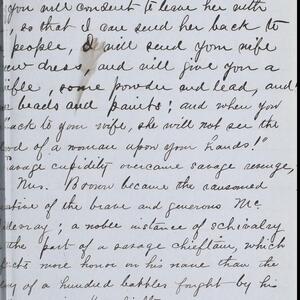 you will consent to leave her with
, so that I can send her back to
people, I will send your wife
new dress, and will give you a
rifle, some powder and lead, and
beads and paints; and when you
back to your wife, she will not see the
blood of a woman upon your hands!"
Savage cupidity overcame savage revenge,
Mrs. Boom became the ransomed
captive of the brave and generous Mc
; a noble instance of schivalry
the part of a savage chieftain, which
more honor on his name than the
of a hundred battles fought by his